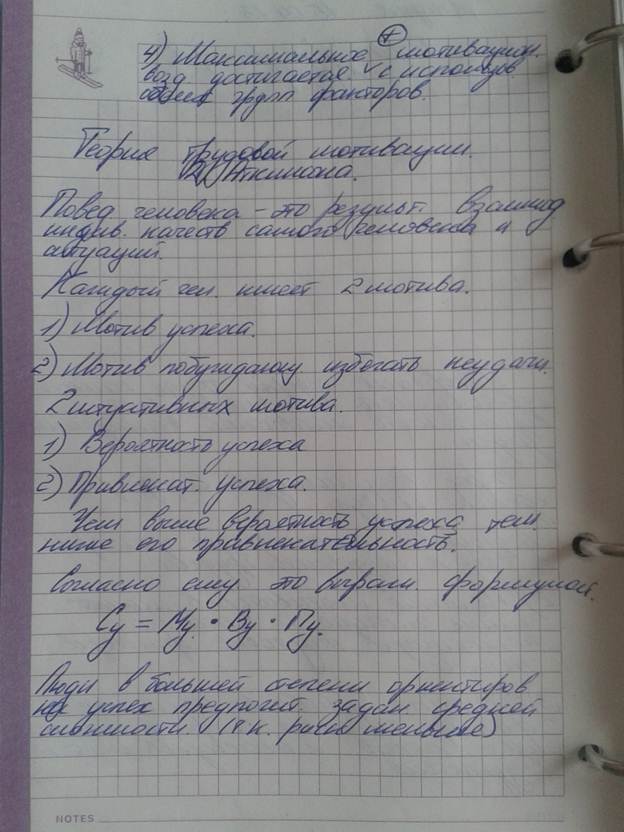 4) Максимальное + мотивацион.
возд достигается с использов
обеих групп факторов.
Теория трудовой мотивации.
Аткинсона.
Повед человека – это результ. взаимод
индив. качеств самого человека и
ситуаций.
Каждый чел. имеет 2 мотива.
1) Мотив успеха.
2) Мотив побуждающ избегать неудачи.
2 ситуативных мотива.
1) Вероятность успеха
2) Привлекат. успеха.
Чем выше вероятность успеха тем
ниже его привлекательность.
Согласно ему это выраж. формулой.
Су = Му · Ву · Пу.
Люди в большей степени ориентиров
на успех предпочит. задан средней
сложности. (т.к. риск меньше)
NOTES